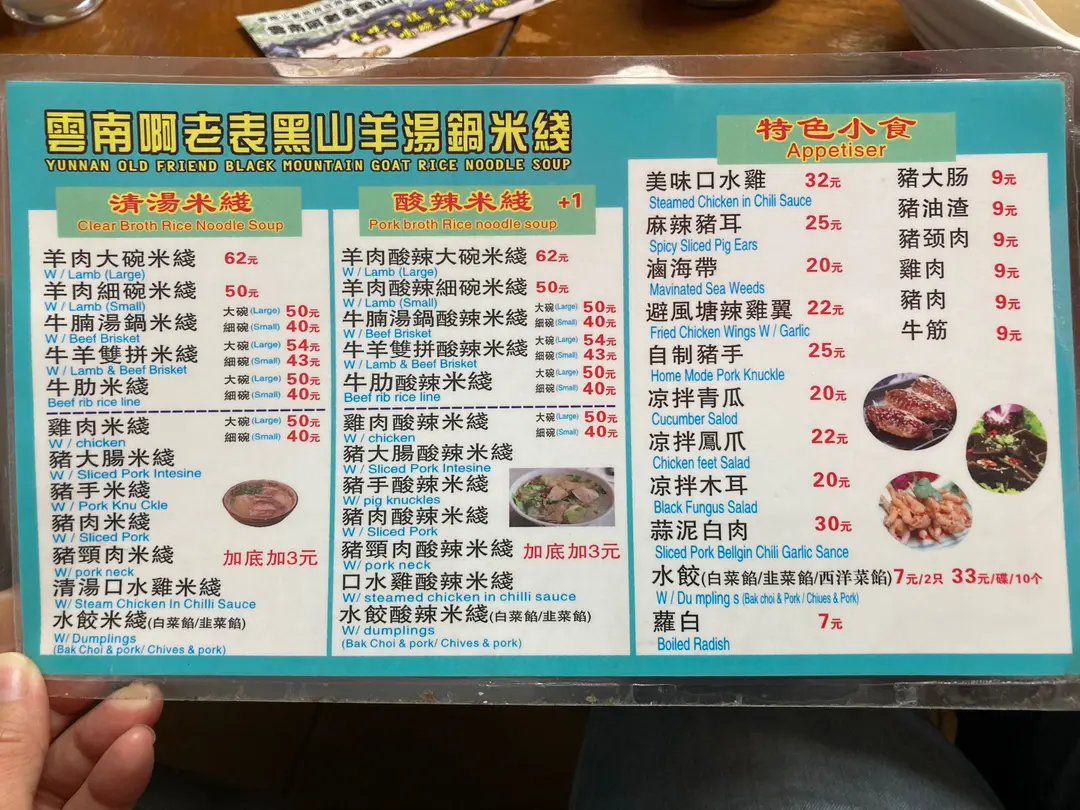 雲南啊老表黑山羊湯鍋米綫
YUNNAN OLD FRIEND BLACK MOUNTAIN GOAT RICE NOODLE SOUP
清湯米綫
Clear Broth Rice Noodle Soup
羊肉大碗米綫 62元
W / Lamb (Large)
羊肉細碗米綫 50元
W / Lamb (Small)
牛腩湯鍋米綫 大碗(Large) 50元
細碗(Small) 40元
W / Beef Brisket
牛羊雙拼米綫 大碗(Large) 54元
細碗(Small) 43元
W / Lamb & Beef Brisket
牛肋米綫 大碗(Large) 50元
細碗(Small) 40元
Beef rib rice line
雞肉米綫 大碗(Large) 50元
細碗(Small) 40元
W / chicken
豬大腸米綫
W / Sliced Pork Intesine
豬手米綫
W / Pork Knu Ckle
豬肉米綫
W / Sliced Pork
豬頸肉米綫 加底加3元
W/ pork neck
清湯口水雞米綫
W/ Steam Chicken In Chilli Sauce
水餃米綫(白菜餡/韭菜餡)
W/ Dumplings
(Bak Choi & pork/ Chives & pork)
酸辣米綫 +1
Pork broth Rice noodle soup
羊肉酸辣大碗米綫 62元
W / Lamb (Large)
羊肉酸辣細碗米綫 50元
W / Lamb (Small)
牛腩湯鍋酸辣米綫 大碗(Large) 50元
細碗(Small) 40元
W / Beef Brisket
牛羊雙拼酸辣米綫 大碗(Large) 54元
細碗(Small) 43元
W / Lamb & Beef Brisket
牛肋酸辣米綫 大碗(Large) 50元
細碗(Small) 40元
Beef rib rice line
雞肉酸辣米綫 大碗(Large) 50元
細碗(Small) 40元
W / chicken
豬大腸酸辣米綫
W / Sliced Pork Intesine
豬手酸辣米綫
W/ pig knuckles
豬肉酸辣米綫
W / Sliced Pork
豬頸肉酸辣米綫 加底加3元
W/ pork neck
口水雞酸辣米綫
W/ steamed chicken in chilli sauce
水餃酸辣米綫(白菜餡/韭菜餡)
W/ dumplings
(Bak Choi & pork/ Chives & pork)
特色小食
Appetiser
美味口水雞 32元
Steamed Chicken in Chili Sauce
麻辣豬耳 25元
Spicy Sliced Pig Ears
滷海帶 20元
Mavinated Sea Weeds
避風塘辣雞翼 22元
Fried Chicken Wings W / Garlic
自制豬手 25元
Home Mode Pork Knuckle
凉拌青瓜 20元
Cucumber Salod
凉拌鳳爪 22元
Chicken feet Salad
凉拌木耳 20元
Black Fungus Salad
蒜泥白肉 30元
Sliced Pork Bellgin Chili Garlic Sance
水餃(白菜餡/韭菜餡/西洋菜餡)7元/2只 33元/碟/10个
W / Du mpling s (Bak choi & Pork / Chiues & Pork)
蘿白 7元
Boiled Radish
豬大肠 9元
豬油渣 9元
豬颈肉 9元
雞肉 9元
豬肉 9元
牛筋 9元